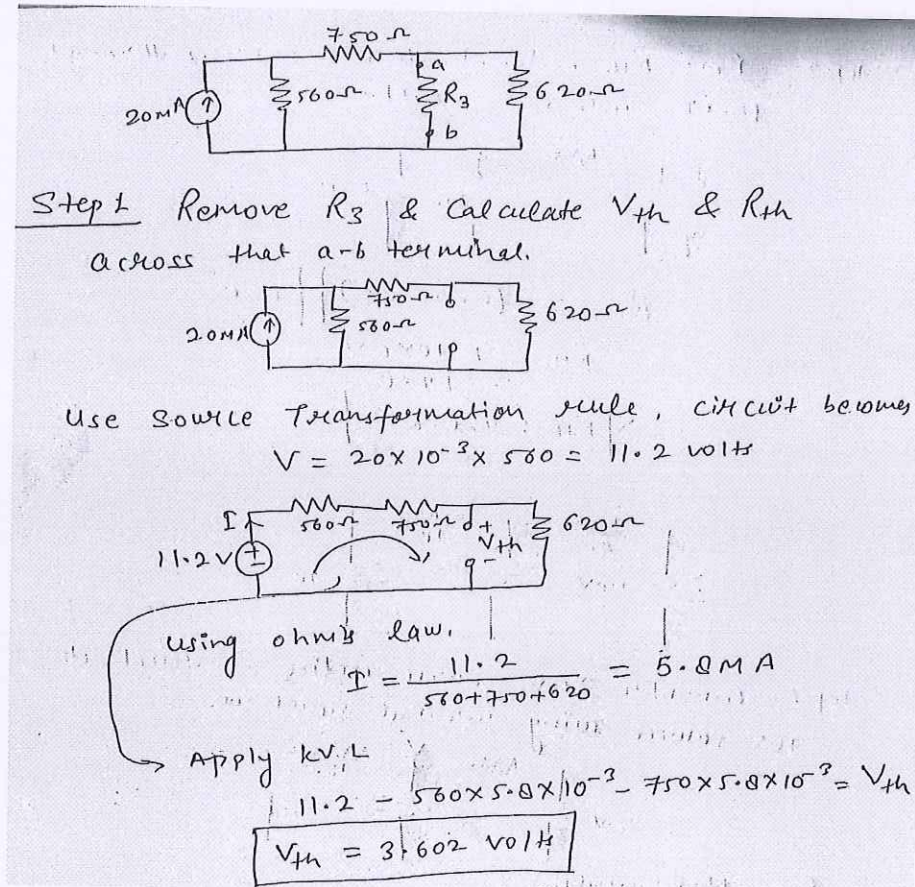 750Ω
20MA
560Ω
a
R3
b
620Ω
Step 1 Remove R3 & Calculate Vth & Rth
across that a-b terminal.
20MA
750Ω
560Ω
620Ω
Use Source Transformation rule, circuit becomes
V = 20×10-3×560 = 11.2 volts
I
560Ω
750Ω
+
Vth
-
620Ω
11.2V
+
-
using ohm's law.
I = 11.2 / 560+750+620 = 5.8MA
Apply KVL
11.2 - 560×5.8×10-3 - 750×5.8×10-3 = Vth
Vth = 3.602 volts